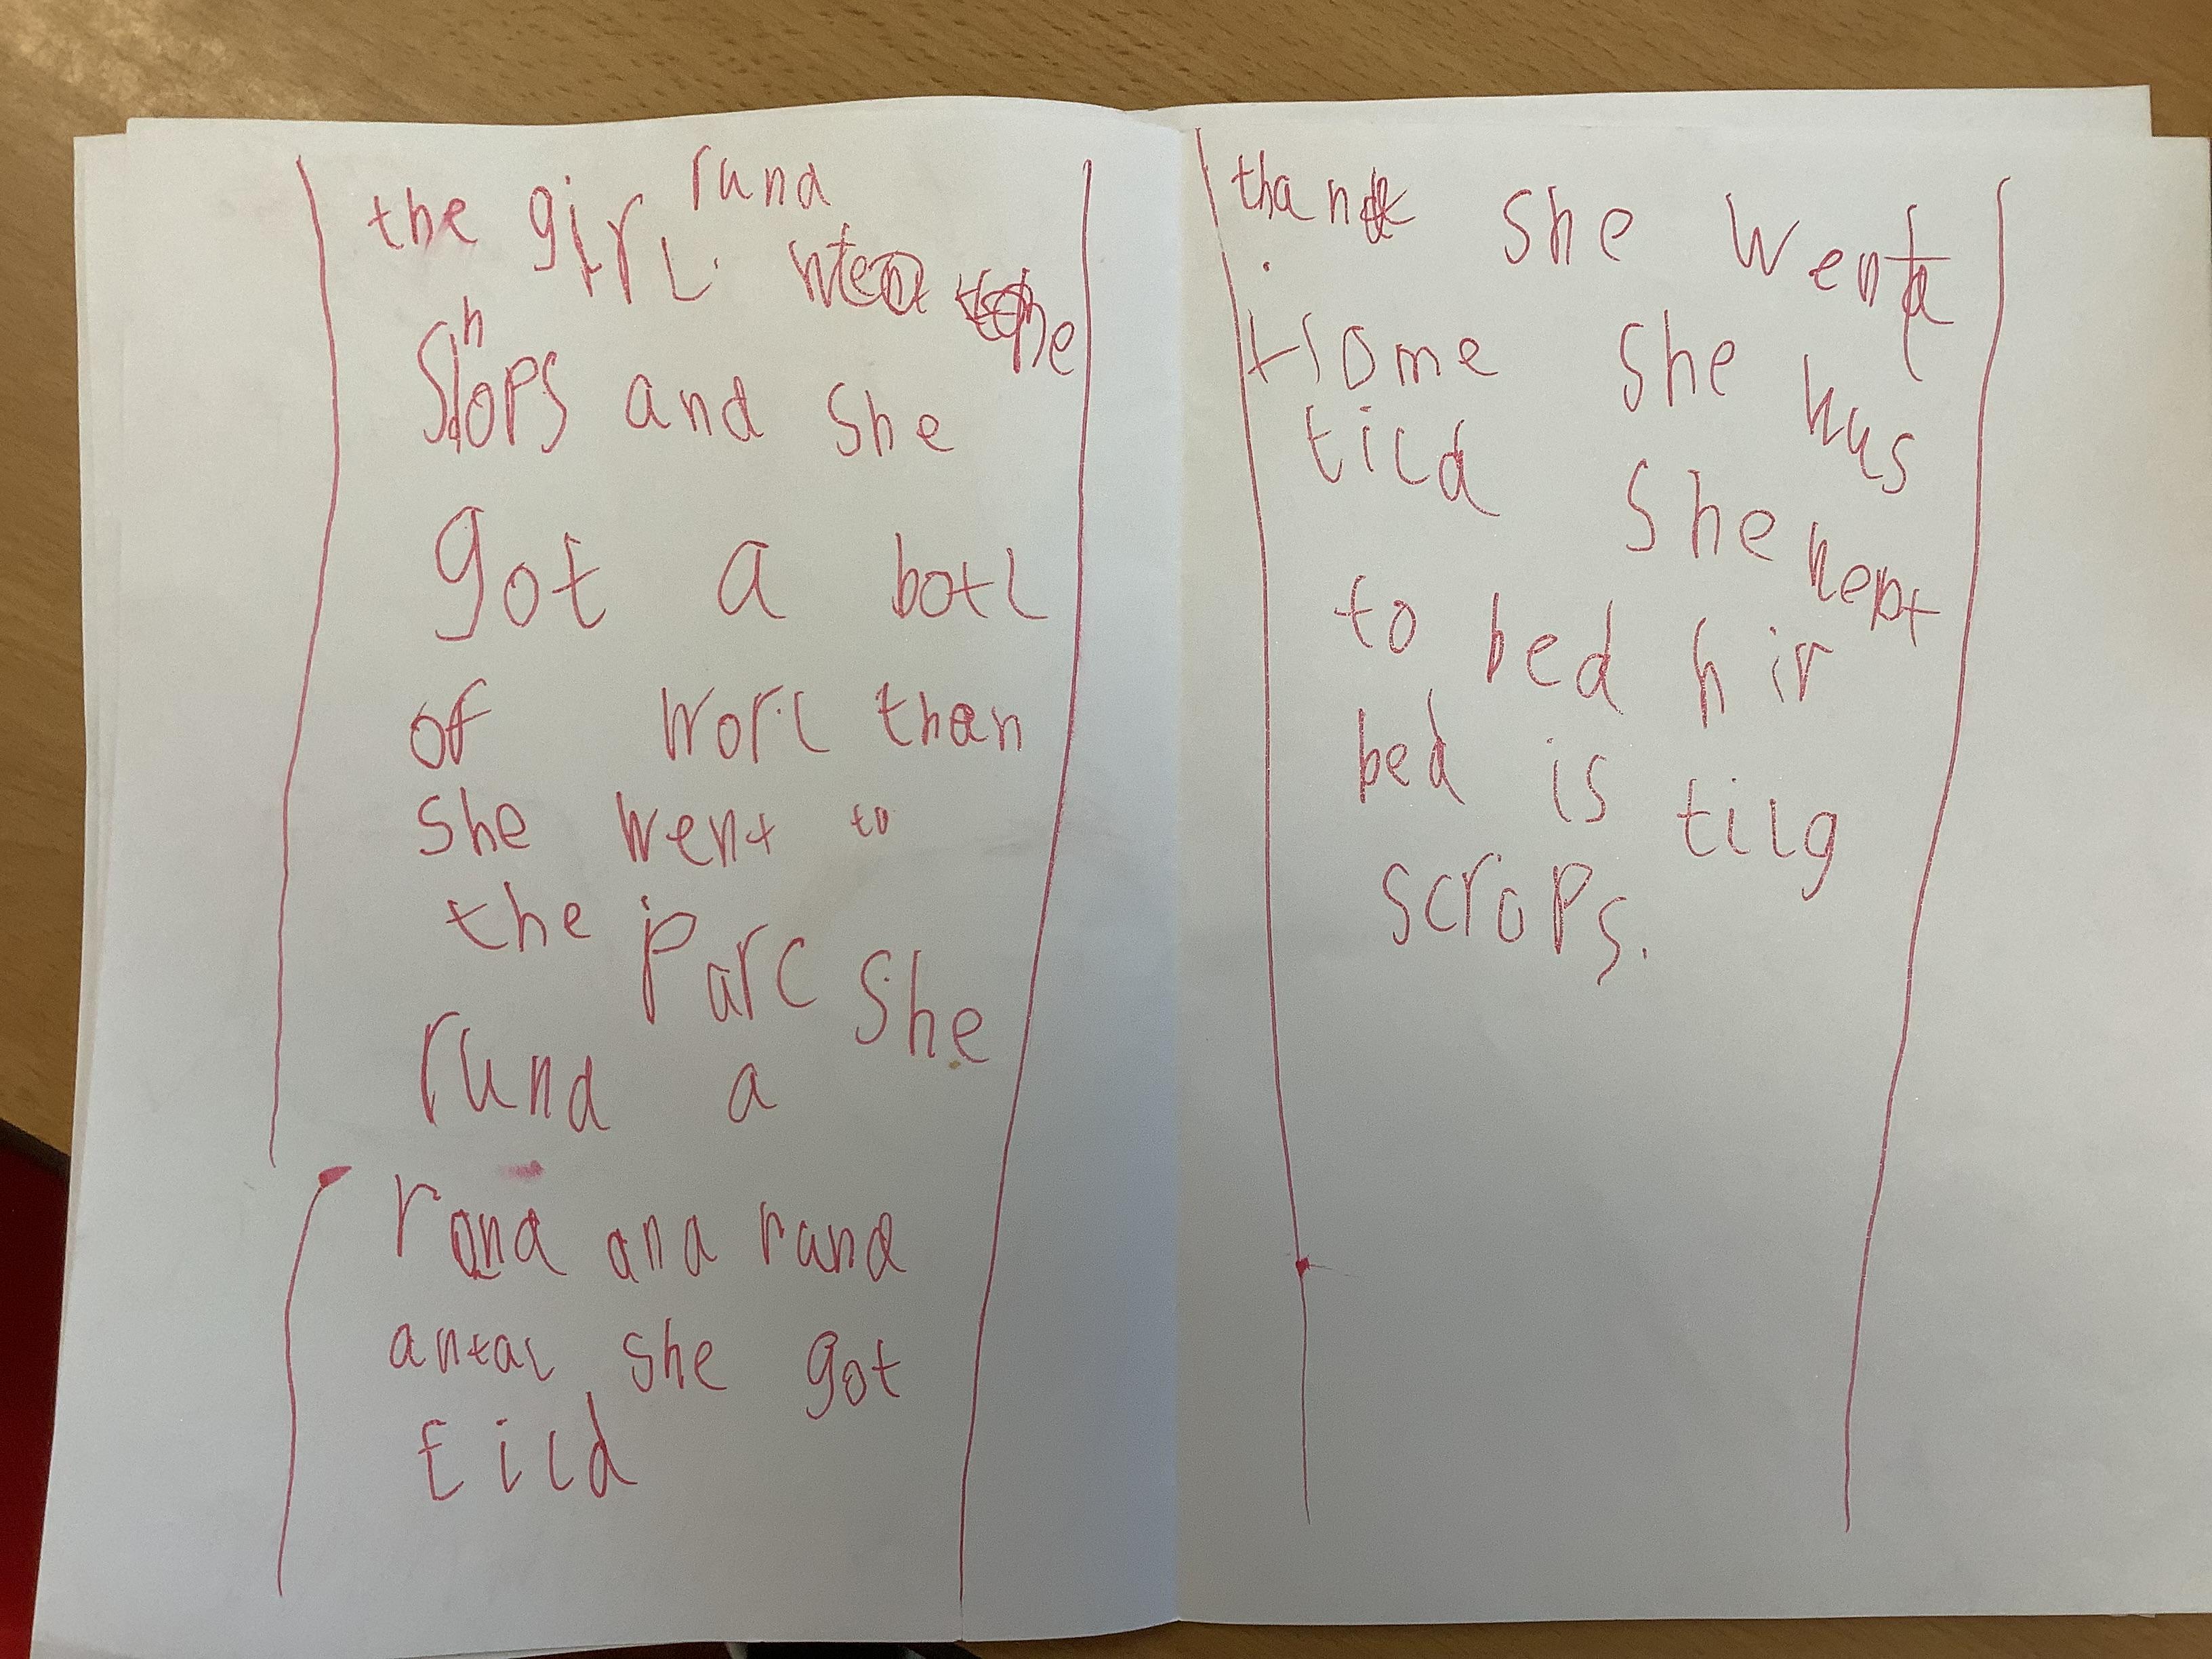 the girl rund
the
Shops and she
got a botl
of worl than
she went to
the Parc she
rund a
rond and rand
antal she got
tild
than she went
Home she wus
tild she wept
to bed hir
bed is tilg
scrops.